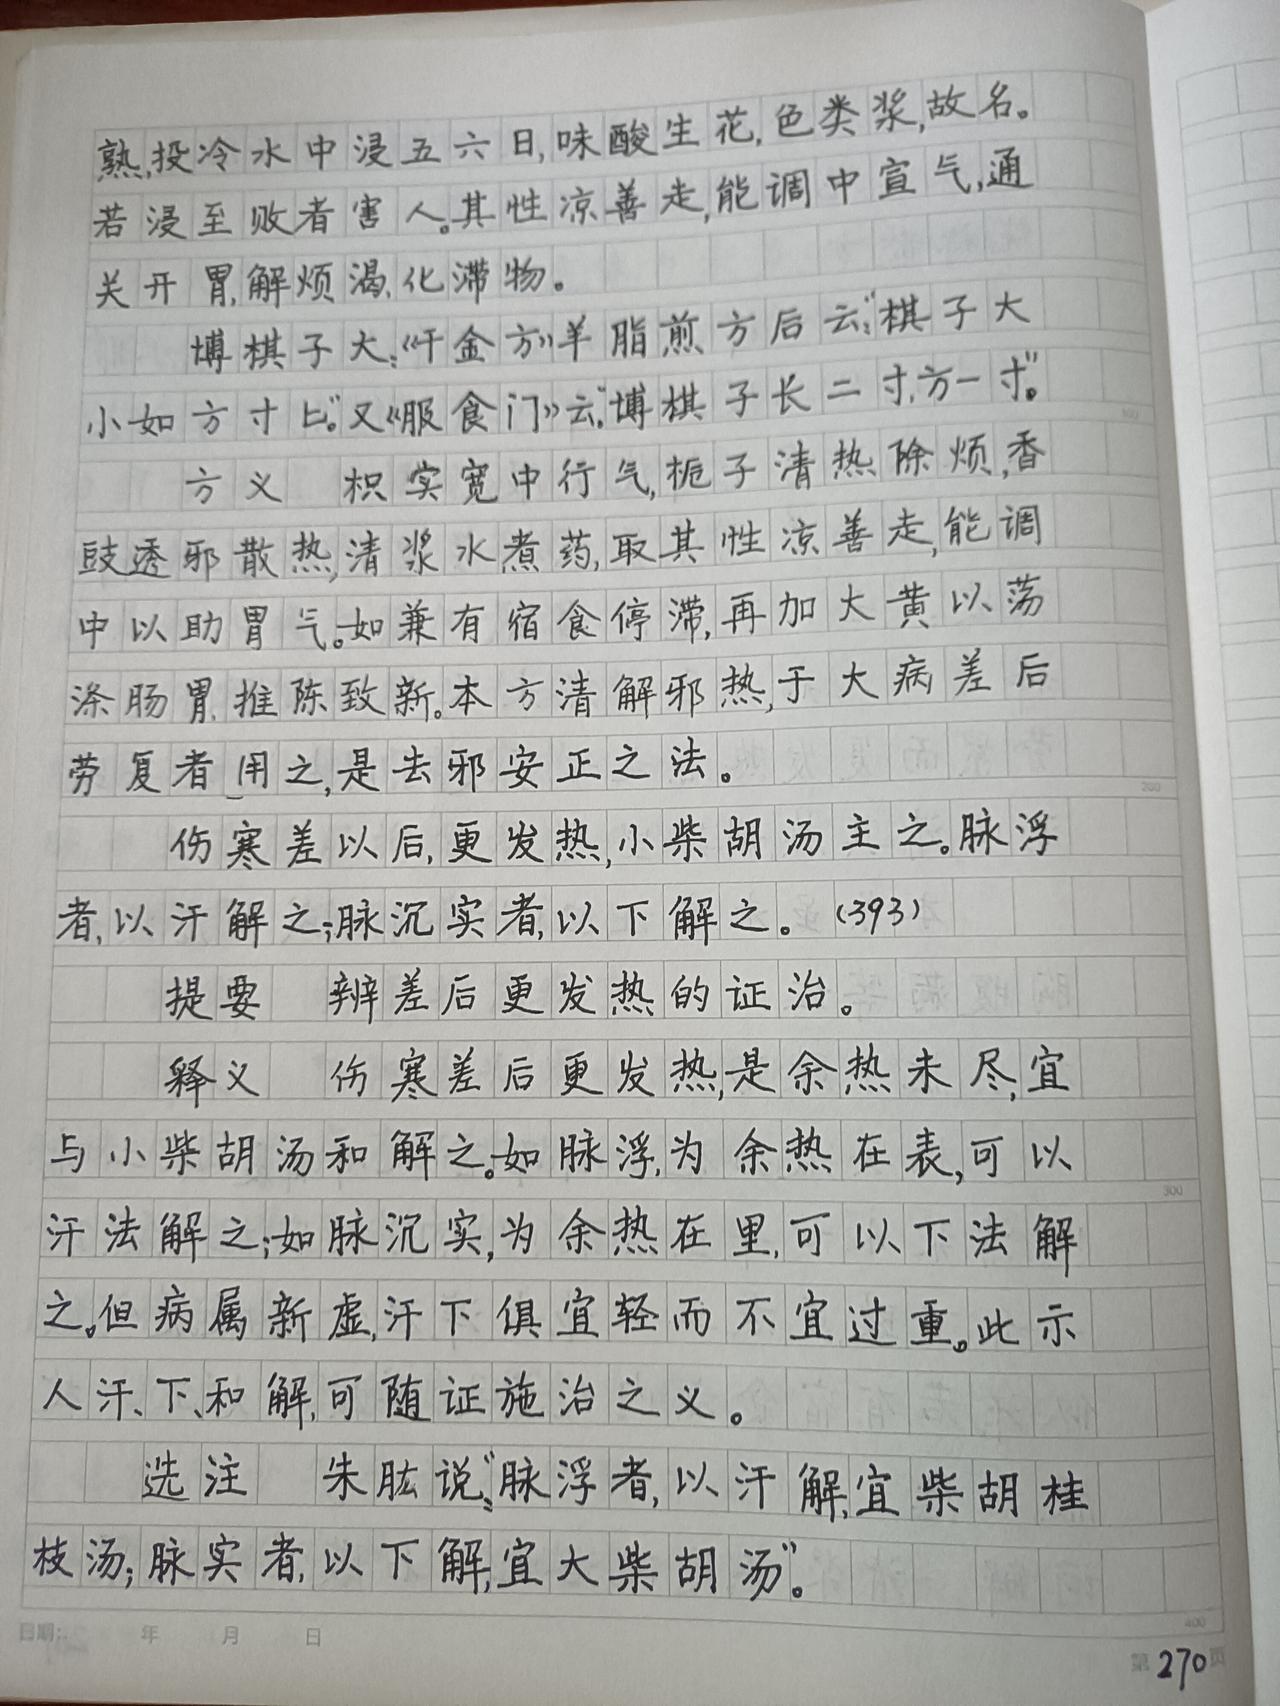 熟,投冷水中浸五六日,味酸生花,色类浆,故名。
若浸至败者害人。其性凉善走,能调中宣气,通
关开胃,解烦渴、化滞物。
博棋子大:《千金方》羊脂煎方后云:“棋子大
小如方寸匕”。又《服食门》云:“博棋子长二寸,方一寸”。
方义 枳实宽中行气,栀子清热除烦,香
豉透邪散热,清浆水煮药,取其性凉善走,能调
中以助胃气。如兼有宿食停滞,再加大黄以荡
涤肠胃,推陈致新。本方清解邪热,于大病差后
劳复者用之,是去邪安正之法。
伤寒差以后,更发热,小柴胡汤主之。脉浮
者,以汗解之;脉沉实者,以下解之。(393)
提要 辨差后更发热的证治。
释义 伤寒差后更发热,是余热未尽,宜
与小柴胡汤和解之。如脉浮,为余热在表,可以
汗法解之;如脉沉实,为余热在里,可以下法解
之。但病属新虚,汗下俱宜轻而不宜过重。此示
人汗、下、和解,可随证施治之义。
选注 朱肱说:“脉浮者,以汗解,宜柴胡桂
枝汤;脉实者,以下解,宜大柴胡汤”。
日期: 年 月 日
第270页
100
200
300
400